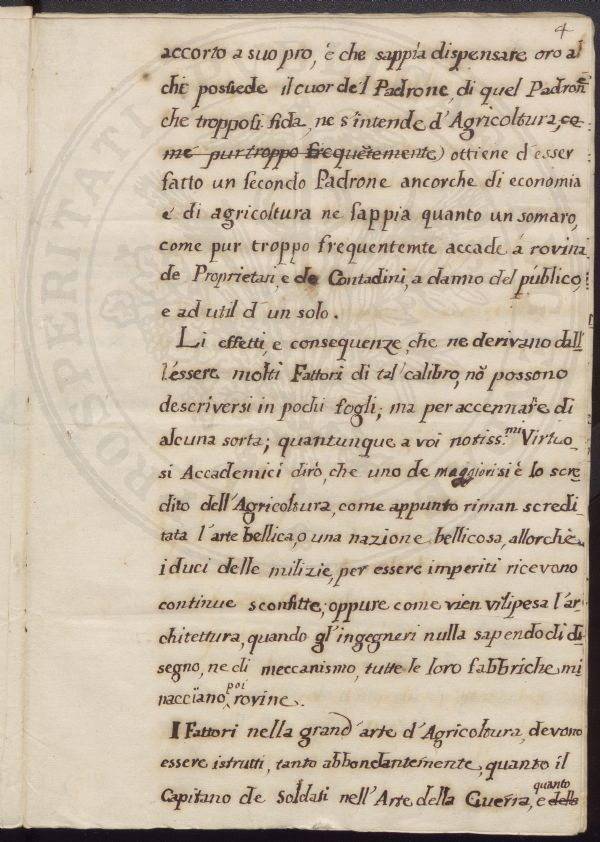 4
accorto a suo pro, è che sappia dispensare oro a
chi possiede il cuor del Padrone, di quel Padron
che tropposi fida, ne s'intende d'Agricoltura, co-
me pur troppo frequētemente) ottiene d'esser
fatto un secondo Padrone ancorche di economia
e di agricoltura ne sappia quanto un somaro,
come pur troppo frequentemte accade á rovina
de Proprietari, e de Contadini, a danno del público,
e ad util d'un solo.
Li effetti, e consequenze, che ne derivano dall'
l'essere molti Fattori di tal'calibro, nō possono
descriversi in pochi fogli; ma per accennare di
alcuna sorta; quantunque a voi notiss.mi Virtuo-
si Accademici dirò, che uno de maggiori si è lo scre-
dito dell'Agricoltura, come appunto riman scredi-
tata l'arte bellica, o una nazione bellicosa, allorchè
i duci delle milizie, per essere imperiti ricevono
continue sconfitte; oppure come vien vilipesa l'ar-
chitettura, quando gl'ingegneri nulla sapendo di di-
segno, ne di meccanismo, tutte le loro fabbriche mi-
nacciano poi rovine.
I Fattori nella grand'arte d'Agricoltura, devono
essere istrutti, tanto abbondantemente, quanto il
Capitano de Soldati nell'Arte della Guerra, e quanto della